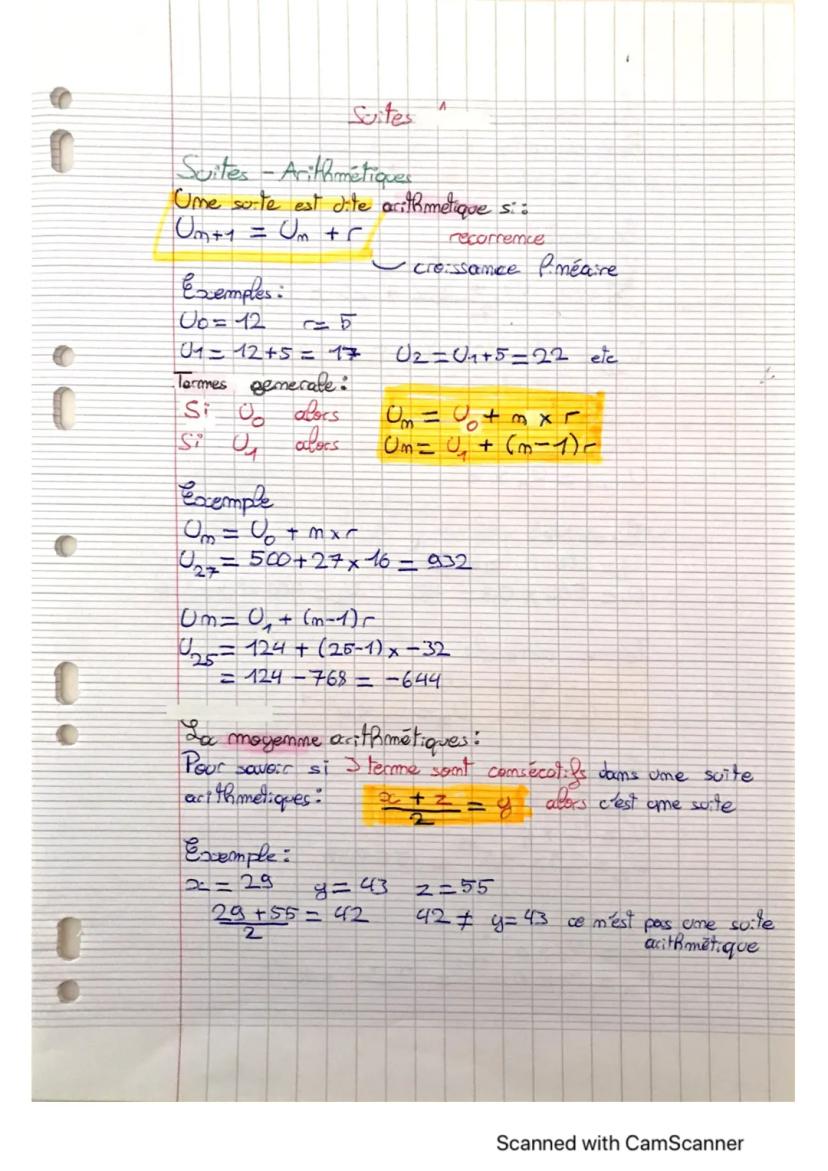 Suites 1
Suites - Arithmétiques
Une suite est dite arithmetique si :
Un+1 = Un + r recurrence
croissance linéaire
Exemples :
U0 = 12 r = 5
U1 = 12+5 = 17 U2 = U1+5 = 22 etc
Termes generale :
Si U0 alors Un = U0 + n x r
Si U1 alors Un = U1 + (n-1)r
Exemple
Un = U0 + n x r
U27 = 500 + 27 x 16 = 932
Un = U1 + (n-1)r
U25 = 124 + (25-1) x -32
= 124 - 768 = -644
La moyenne arithmétiques :
Pour savoir si 3 terme sont consécutifs dans une suite
arithmetiques : x + z / 2 = y alors c'est une suite
Exemple :
x = 29 y = 43 z = 55
29 + 55 / 2 = 42 42 ≠ y = 43 ce n'est pas une suite
arithmétique
Scanned with CamScanner